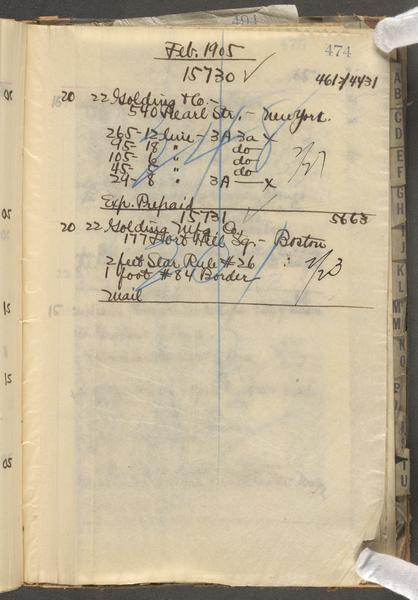 494
Feb. 1905 474
15730 ✓
461-/4431
20 22 Golding & Co. –
540 Pearl Str., – New York.
265 - 12 line – 3A 3a – x
95 - 18 " do
105 - 6 " do
45 - 5 " do
24 - 8 " 3A — x
2/27
Exp. Prepaid
15731 ✓ 5663
20 22 Golding Mfg. Co.
177 Fort Hill Sq. – Boston
2 feet Star Rule # 26
1 foot # 84 Border
2/23
Mail
A
B
C
D
E
F
G
H
I
J
K
L
M
N
O
P
T
U